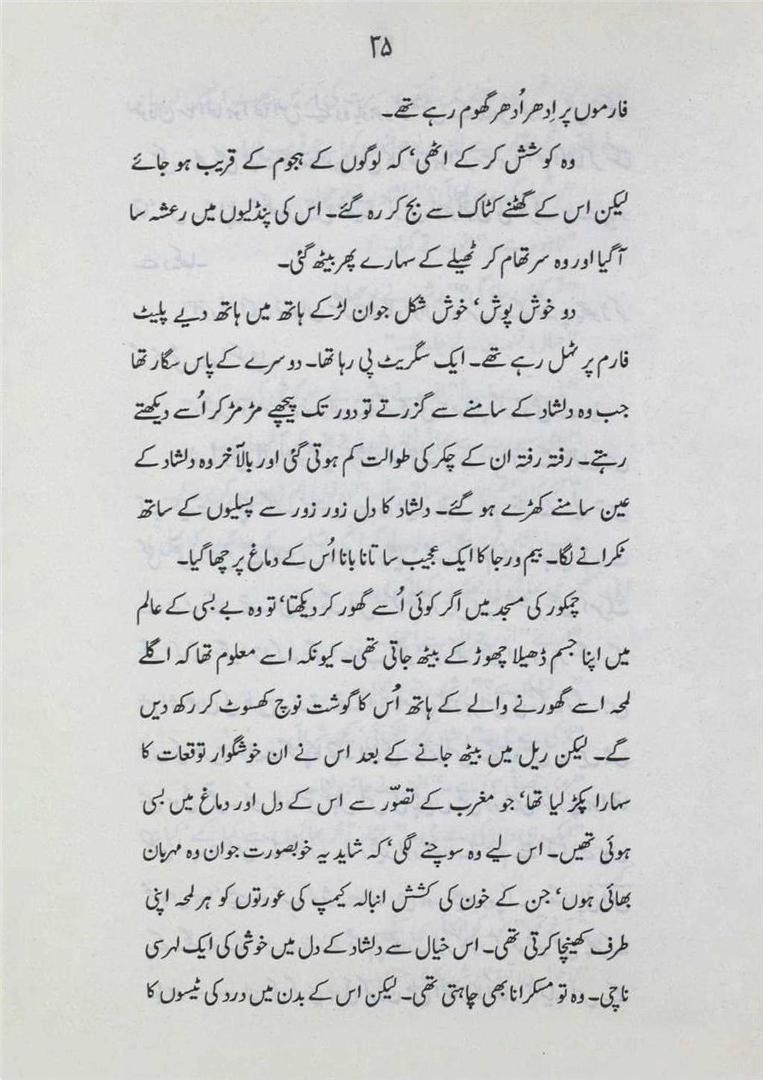 ۳۵
فارموں پر اِدھر اُدھر گھوم رہے تھے۔
وہ کوشش کر کے اٹھی، کہ لوگوں کے ہجوم کے قریب ہو جائے
لیکن اس کے گھٹنے کٹاک سے بج کر رہ گئے۔ اس کی پنڈلیوں میں رعشہ سا
آ گیا اور وہ سر تھام کر ٹھیلے کے سہارے پھر بیٹھ گئی۔
دو خوش پوش، خوش شکل جوان لڑکے ہاتھ میں ہاتھ دیے پلیٹ
فارم پر ٹہل رہے تھے۔ ایک سگریٹ پی رہا تھا۔ دوسرے کے پاس سگار تھا
جب وہ دلشاد کے سامنے سے گزرتے تو دور تک پیچھے مڑ مڑ کر اُسے دیکھتے
رہتے۔ رفتہ رفتہ ان کے چکر کی طوالت کم ہوتی گئی اور بالآخر وہ دلشاد کے
عین سامنے کھڑے ہو گئے۔ دلشاد کا دل زور زور سے پسلیوں کے ساتھ
ٹکرانے لگا۔ بیم و رجا کا ایک عجیب سا تانا بانا اُس کے دماغ پر چھا گیا۔
چمکور کی مسجد میں اگر کوئی اُسے گھور کر دیکھتا، تو وہ بے بسی کے عالم
میں اپنا جسم ڈھیلا چھوڑ کے بیٹھ جاتی تھی۔ کیونکہ اسے معلوم تھا کہ اگلے
لمحہ اسے گھورنے والے کے ہاتھ اُس کا گوشت نوچ کھسوٹ کر رکھ دیں
گے۔ لیکن ریل میں بیٹھ جانے کے بعد اس نے ان خوشگوار توقعات کا
سہارا پکڑ لیا تھا، جو مغرب کے تصوّر سے اس کے دل اور دماغ میں بسی
ہوئی تھیں۔ اس لیے وہ سوچنے لگی، کہ شاید یہ خوبصورت جوان وہ مہربان
بھائی ہوں، جن کے خون کی کشش انبالہ کیمپ کی عورتوں کو ہر لمحہ اپنی
طرف کھینچا کرتی تھی۔ اس خیال سے دلشاد کے دل میں خوشی کی ایک لہر سی
ناچی۔ وہ تو مسکرانا بھی چاہتی تھی۔ لیکن اس کے بدن میں درد کی ٹیسوں کا